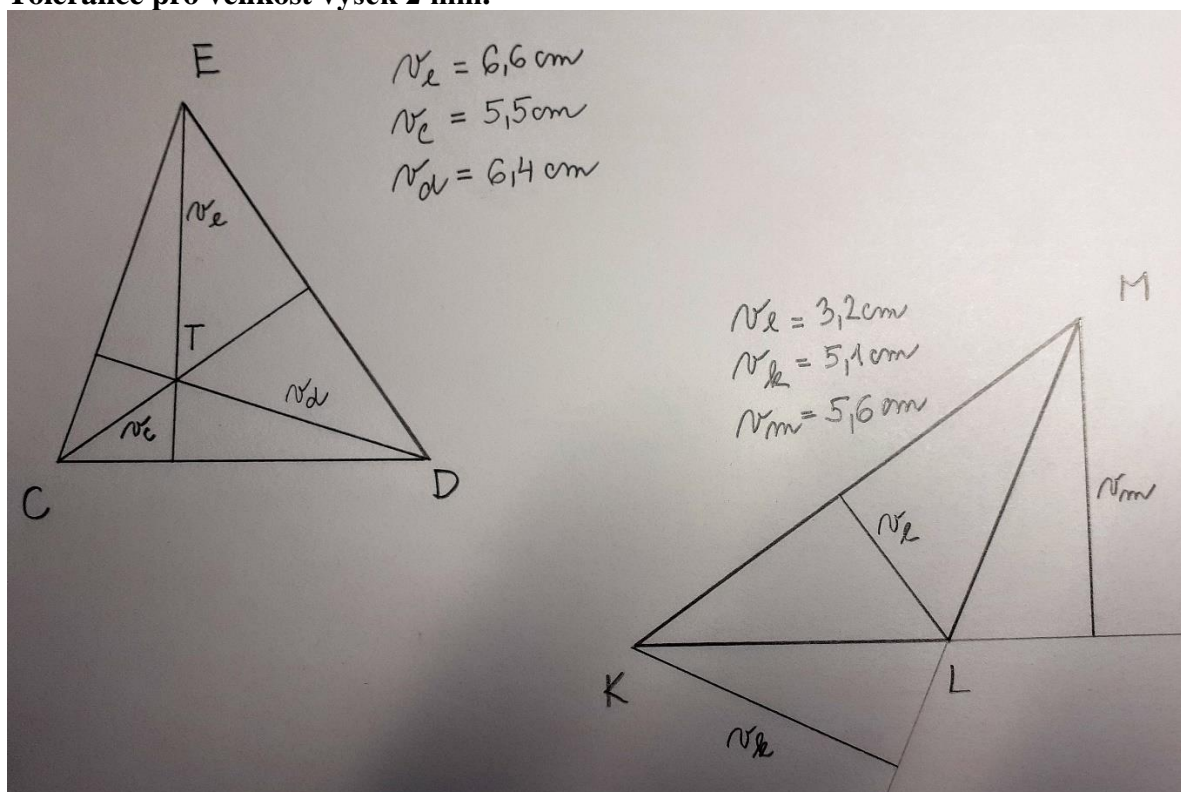 Tolerance pro velikost výšek 2 mm.
E
v_e = 6,6 cm
v_c = 5,5 cm
v_d = 6,4 cm
v_e
T
v_d
v_c
C
D
M
v_l = 3,2 cm
v_k = 5,1 cm
v_m = 5,6 cm
v_m
v_l
K
L
v_k